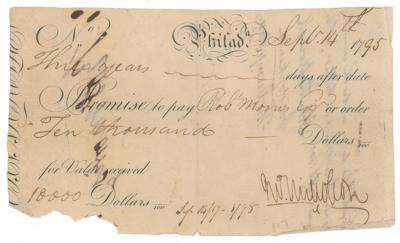 No.
Philada. Sept. 14th 1795
Three years days after date
I Promise to pay Robt Morris Esqr or order
Ten thousand Dollars
for Value received
10000 Dollars
Sep. 14/17 - 1798
Jno. Nicholson